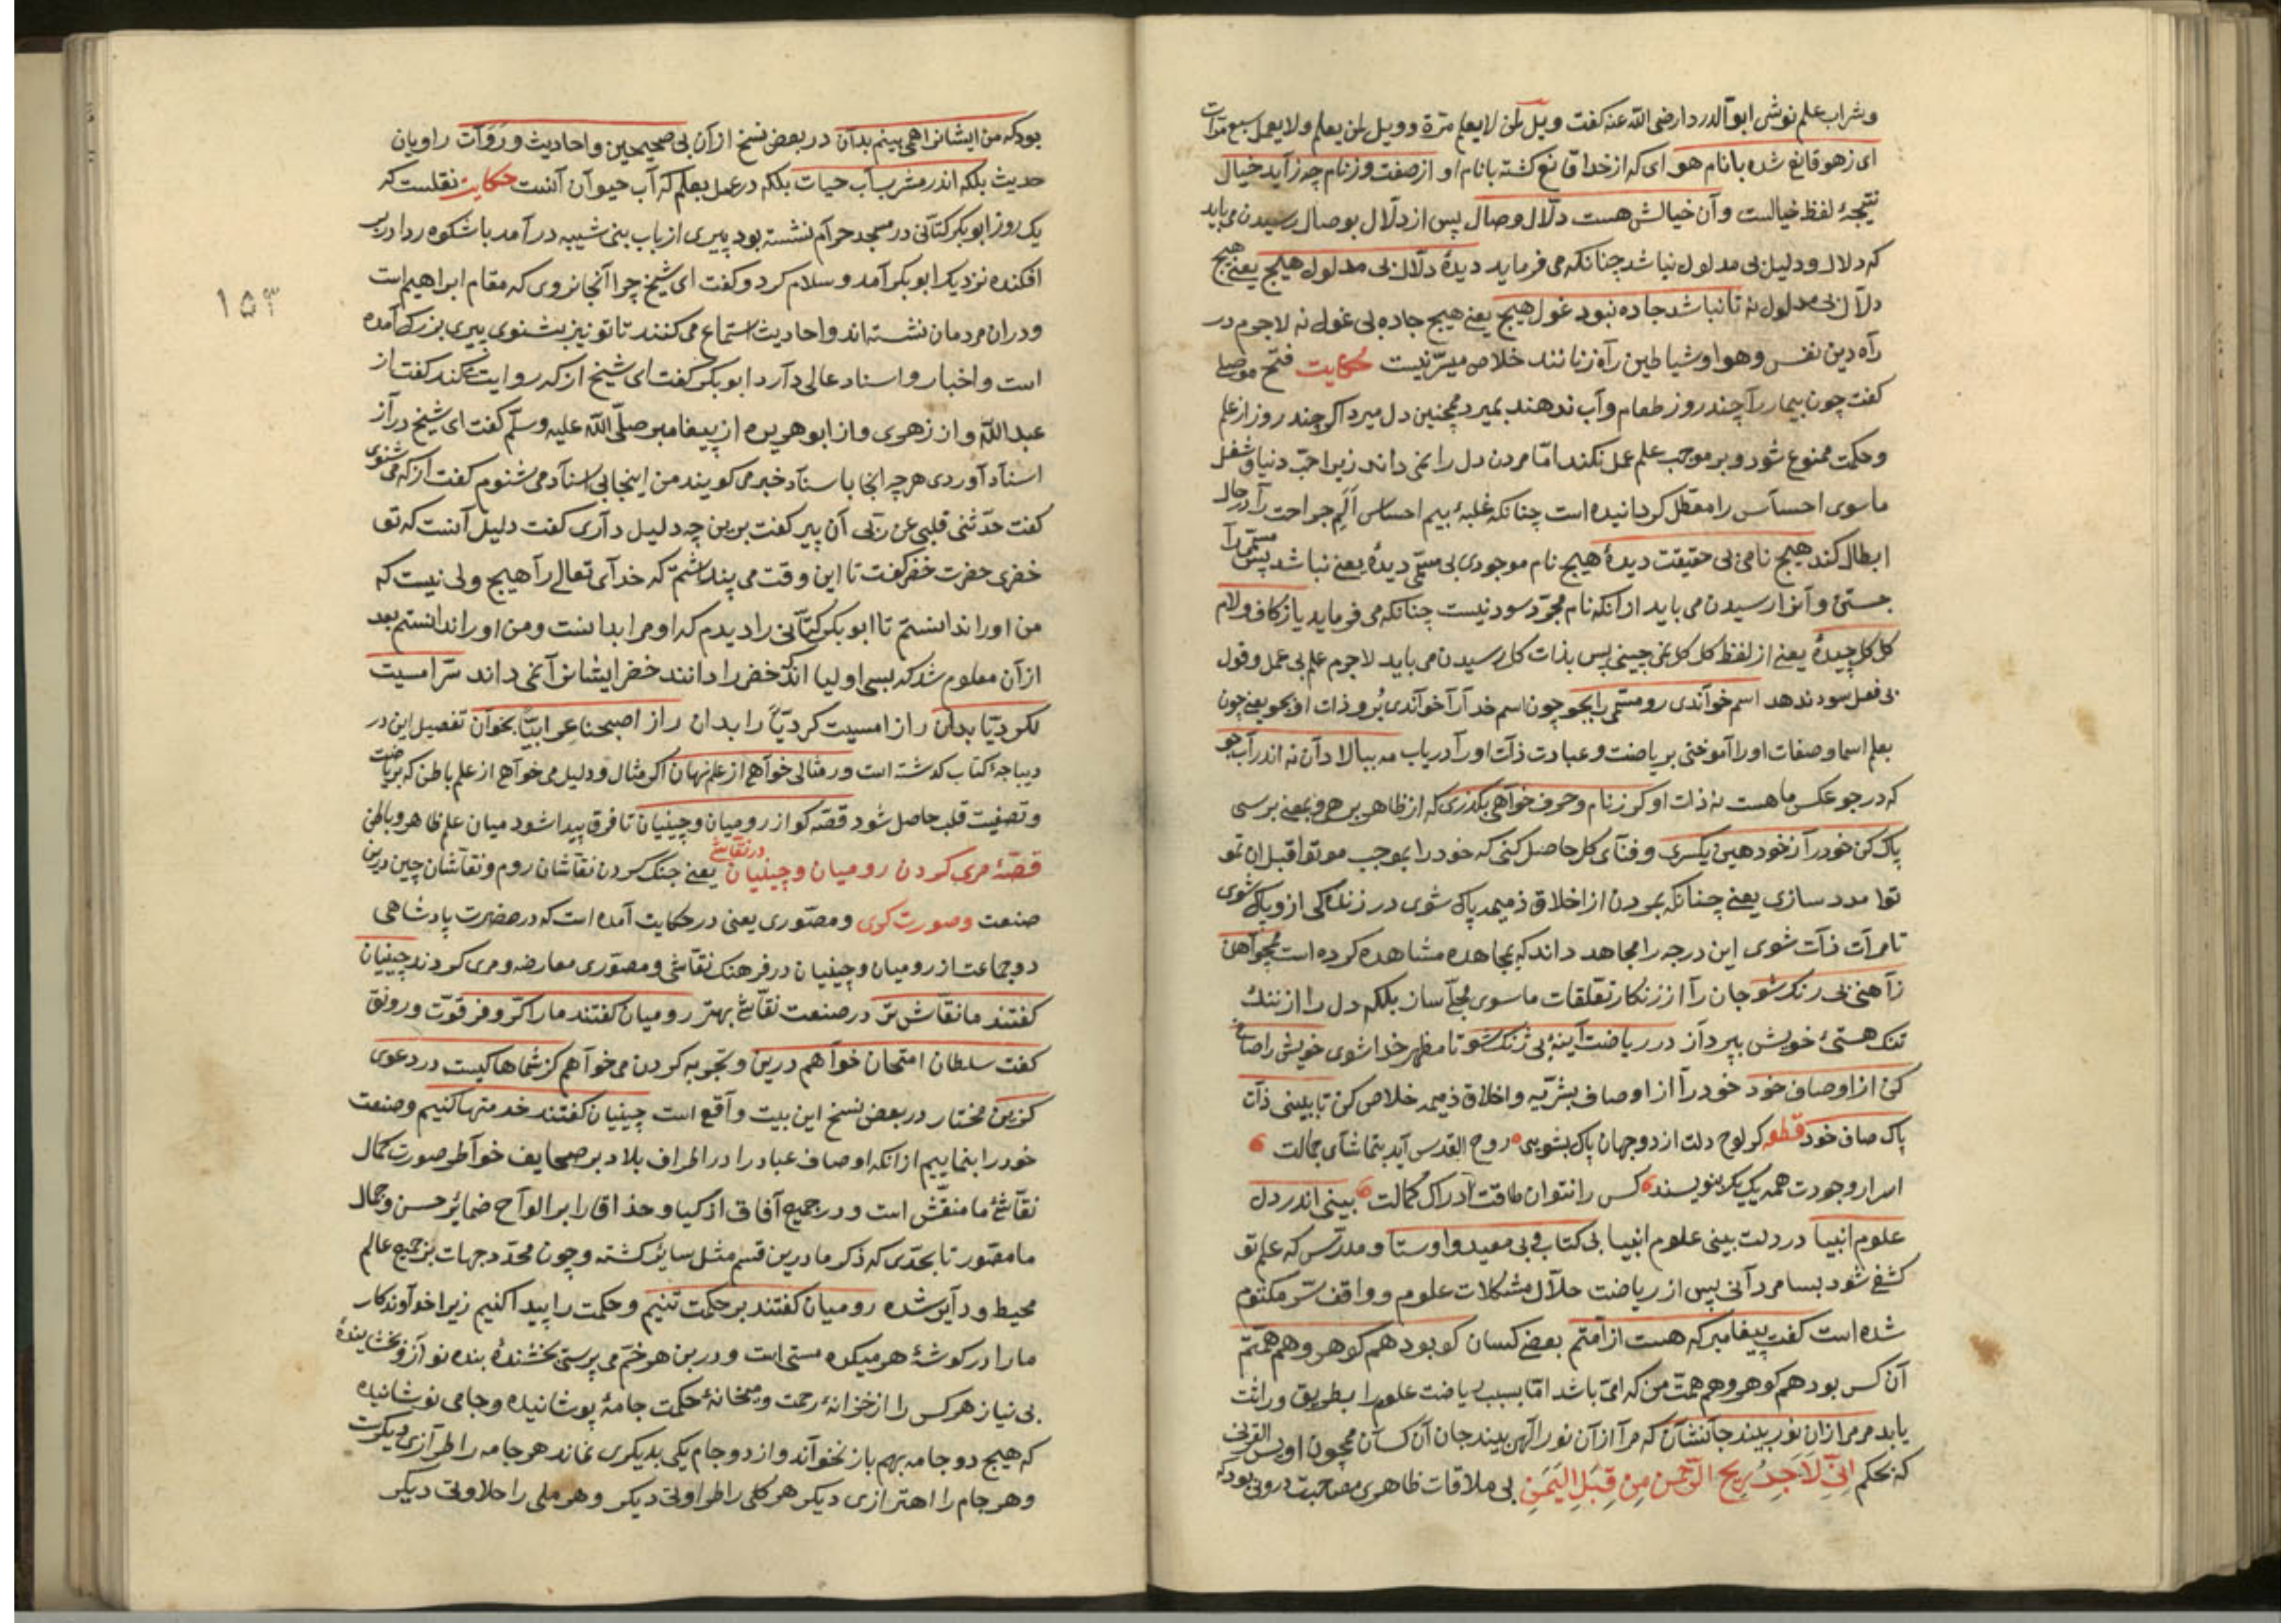 وشراب علم نوشی ابوالدردا رضی الله عنه کفت ویل لمن لا یعلم مرة وویل لمن یعلم ولا یعمل سبع مرات
ای زهو قانع شده بانام هو ای که از خدا قانع کشته بانام او از صفت وز نام چه زاید خیال
نتیجهٔ لفظ خیالست وآن خیالش هست دلال وصال پس از دلال بوصال رسیدن می باید
که دلال ودلیل بی مدلول نباشد چنانکه می فرماید دیدهٔ دلال بی مدلول هیچ یعنی هیچ
دلال بی مدلول نه تا نباشد جاده نبود غول هیچ یعنی هیچ جاده بی غول نه لاجرم در
راه دین نفس وهوا وشیاطین راه زنانند خلاص میسر نیست حکایت فتح موصلی
کفت چون بیمار را چند روز طعام وآب ندهند بمیرد همچنین دل میرد اکر چند روز از علم
وحکمت ممنوع شود وبر موجب علم عمل نکند اما مردن دل را نمی داند زیرا حب دنیا وشغل
ماسوی احساس را معطل کردانیده است چنانکه غلبهٔ بیم احساس الم جراحت را در حال
ابطال کند هیچ نامی بی حقیقت دیدهٔ هیچ نام موجودی بی مسمی دیدهٔ یعنی نباشد پس مسمی را
جستن وآنرا رسیدن می باید از آنکه نام مجرد سود نیست چنانکه می فرماید یا ز کاف ولام
کل کل چیدهٔ یعنی از لفظ کل کل نمی چینی پس بذات کل رسیدن می باید لاجرم علم بی عمل وقول
بی فعل سود ندهد اسم خواندی رو مسمی را بجو چون اسم خدا را خواندی برو ذات او بجو یعنی چون
بعلم اسما وصفات اورا آموختی بریاضت وعبادت ذات اورا دریاب مه ببالا دان نه اندر آب جو
که در جو عکس ماهست نه ذات او کر ز نام وحرف خواهی بکذری که از ظاهر بر حرف بمعنی برسی
پاک کن خود را ز خود هین یکسری وفنای کل حاصل کنی که خود را بموجب موتوا قبل ان تمو
توا مدد سازی یعنی چنانکه بمردن از اخلاق ذمیمه پاک شوی در زندکی ازو پاک شوی
تا مرآت ذات شوی این درجه را مجاهد داند که بمجاهده مشاهده کرده است همچو آهن
ز آهنی بی رنک شو جان را از زنکار تعلقات ماسوی مجلا ساز بلکه دل را از ننک
تنک هستیٔ خویش بپرداز در ریاضت آینهٔ بی ژنک شو تا مظهر خدا شوی خویش را صافی
کن از اوصاف خود خود را از اوصاف بشریه واخلاق ذمیمه خلاص کن تا ببینی ذات
پاک صاف خود قطعه کر لوح دلت از دو جهان پاک بشویی روح القدس آید بتماشای جمالت
اسرار وجودت همه یک یک بنویسند کس را نتوان طاقت ادراک کمالت بینی اندر دل
علوم انبیا در دلت بینی علوم انبیا بی کتاب وبی معید واوستا ومدرس که علم تو
کشفی شود بسا مردانی پس از ریاضت حلال مشکلات علوم وواقف سر مکتوم
شده است کفت پیغامبر که هست از امتم بعضی کسان کو بود هم کوهر وهم همتم
آن کس بود هم کوهر وهم همت من که امی باشد اما بسبب ریاضت علوم را بطریق وراثت
یابد مر مرا زان نور بیند جانشان که مرا از آن نور الهی بیند جان آن کسان همچون اویس القرنی
که بحکم انی لاجد ریح الرحمن من قبل الیمن بی ملاقات ظاهری مصاحبت درونی بود که
بود که من ایشانرا همی بینم بدان در بعض نسخ از آن بی صحیحین واحادیث ورواة راویان
حدیث بلکه اندر مشرب آب حیات بلکه در عمل بعلم که آب حیوان آنست حکایت نقلست که
یک روز ابو بکر کتانی در مسجد حرام نشسته بود پیری از باب بنی شیبه در آمد باشکوه ردا در بر
افکنده نزدیک ابو بکر آمد وسلام کرد وکفت ای شیخ چرا آنجا نروی که مقام ابراهیم است
ودران مردمان نشسته اند واحادیث استماع می کنند تا تو نیز بشنوی پیری بزرک آمده
است واخبار واسناد عالی دارد ابو بکر کفت ای شیخ از که روایت میکند کفت از
عبد الله واز زهری واز ابو هریره از پیغامبر صلی الله علیه وسلم کفت ای شیخ دراز
اسناد آوردی هرچه آنجا باسناد خبر می کویند من اینجا بی اسناد می شنوم کفت از که می شنوی
کفت حدثنی قلبی عن ربی آن پیر کفت برین چه دلیل داری کفت دلیل آنست که تو
خضری حضرت خضر کفت تا این وقت می پنداشتم که خدای تعالی را هیچ ولی نیست که
من اورا ندانستم تا ابو بکر کتانی را دیدم که او مرا بدانست ومن اورا ندانستم بعد
از آن معلوم شد که بسی اولیا اند که خضر را دانند خضر ایشانرا نمی داند سر امسیت
لکردیا بدان راز امسیت کردیا را بدان راز اصبحنا عرابیا بخوان تفصیل این در
دیباجهٔ کتاب کذشته است ور مثالی خواهی از علم نهان اکر مثال ودلیل می خواهی از علم باطن که بریاضت
وتصفیت قلب حاصل شود قصه کو از رومیان وچینیان تا فرق پیدا شود میان علم ظاهر وباطن
قصهٔ مری کردن رومیان وچینیان در نقاشی یعنی جنک کردن نقاشان روم ونقاشان چین درین
صنعت وصورت کری ومصوری یعنی در حکایت آمده است که در حضرت پادشاهی
دو جماعت از رومیان وچینیان در فرهنک نقاشی ومصوری معارضه ومری کردند چینیان
کفتند ما نقاش تر در صنعت نقاشی بهتر رومیان کفتند ما را کر وفر قوت ورونق
کفت سلطان امتحان خواهم درین وتجربه کردن می خواهم کز شماها کیست در دعوی
کزین مختار در بعض نسخ این بیت واقع است چینیان کفتند خدمتها کنیم وصنعت
خود را بنماییم از آنکه اوصاف عباد را در اطراف بلاد بر صحایف خواطر صورت کمال
نقاشیٔ ما منقش است ودر جمیع آفاق اذکیا وحذاق را بر الواح ضمایر حسن وجمال
ما مصور تا بحدی که ذکر ما درین قسم مثل سایر کشته وچون محدد جهات بر جمیع عالم
محیط ودایر شده رومیان کفتند بر حکمت تنیم وحکمت را پیدا کنیم زیرا خداوند کار
ما را در کوشهٔ هر میکده مستی است ودر بن هر خم می پرستی بخشندهٔ بنده نواز وبخشایندهٔ
بی نیاز هر کس را از خزانهٔ رحمت ومیخانهٔ حکمت جامهٔ پوشانیده وجامی نوشانیده
که هیچ دو جامه بهم باز نخواند واز دو جام یکی بدیکری نماند هر جامه را طرازی دیکرست
وهر جام را اهتزازی دیکر هر کلی را طراوتی دیکر وهر ملی را حلاوتی دیکر
۱۵۳